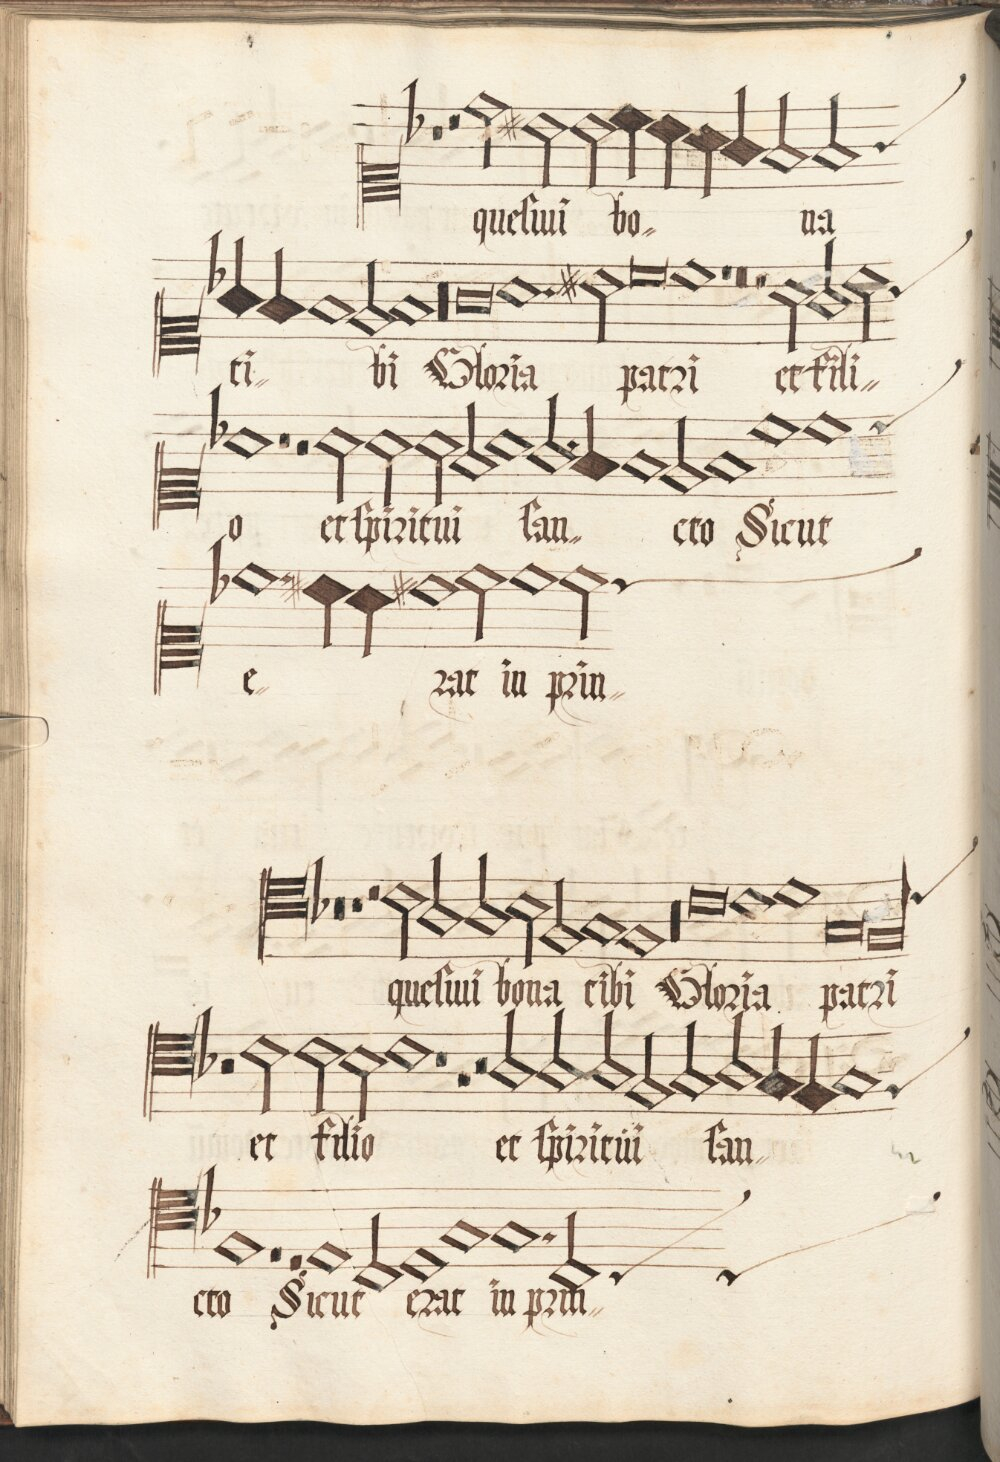 quesivi bo〃 na
ti〃 bi Gloria patri et fili〃
o et spiritui san〃 cto Sicut
e〃 rat in prin〃
quesivi bona tibi Gloria patri
et filio et spiritui san〃
cto Sicut erat in prin〃